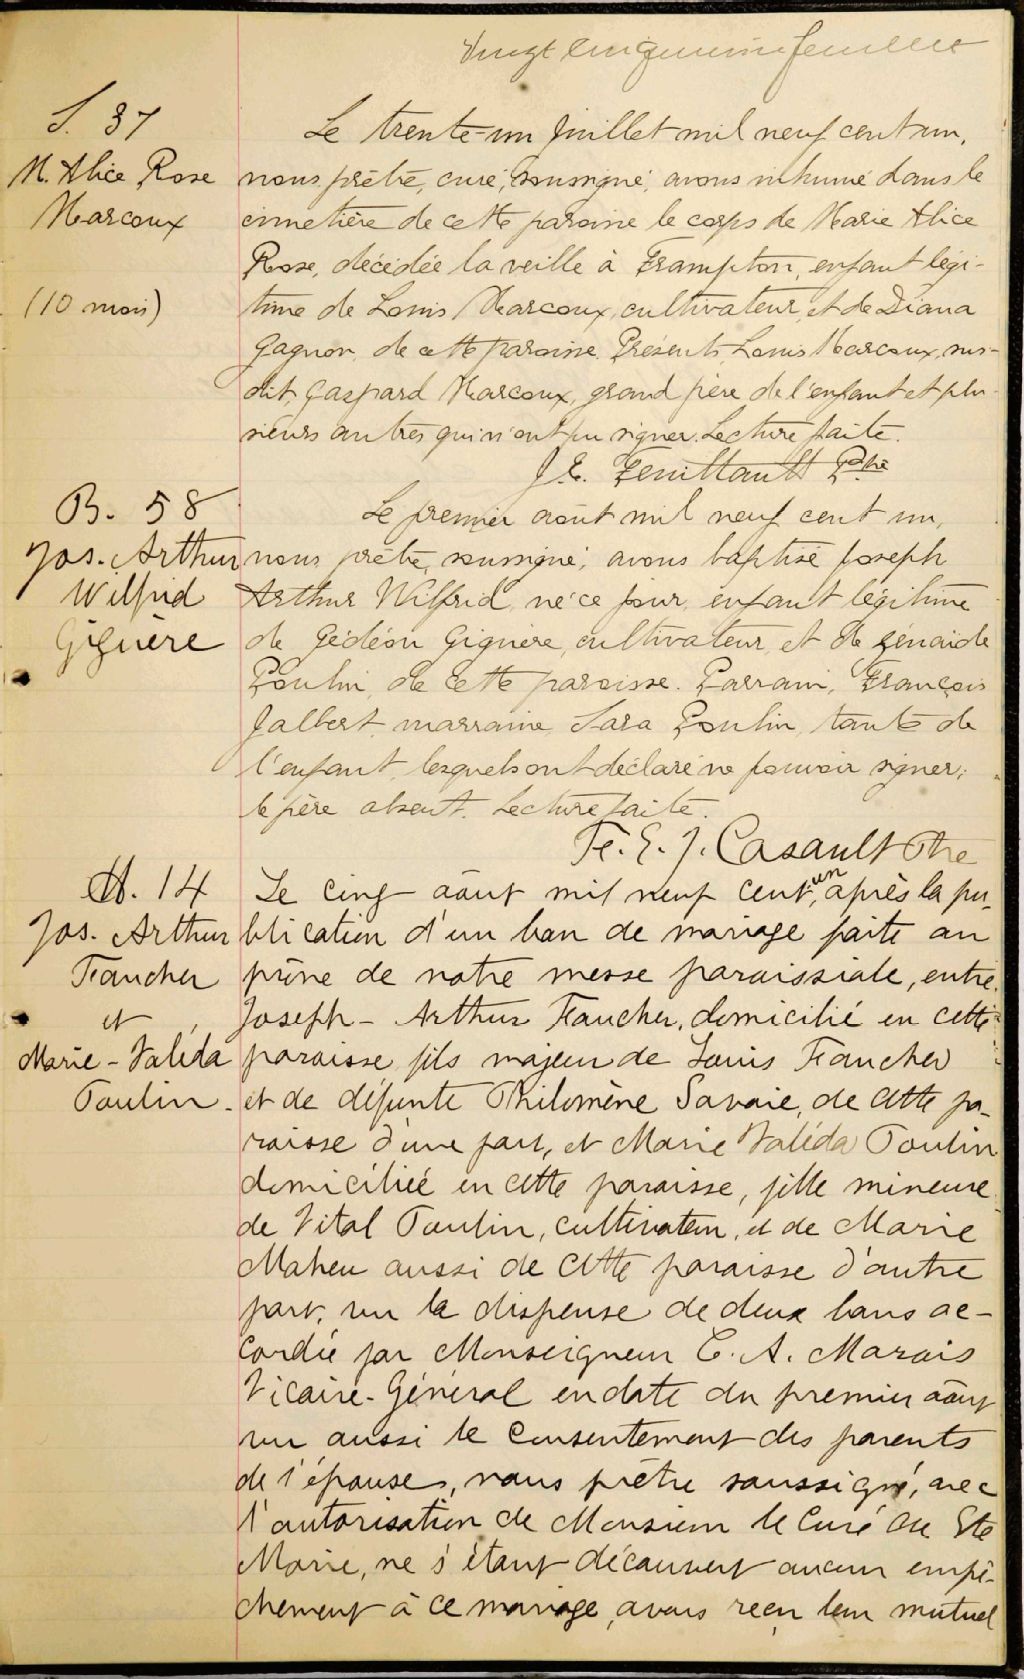 Vingt cinquieme feuillet
S. 37
M. Alice Rose
Marcoux
(10 mois)
Le trente-un Juillet mil neuf cent un,
nous prêtre, curé, soussigné, avons inhumé dans le
cimetière de cette paroisse le corps de Marie Alice
Rose, décédée la veille à Frampton, enfant légi-
time de Louis Marcoux, cultivateur, et de Diana
Gagnon, de cette paroisse. Présents Louis Marcoux, sus-
dit, Gaspard Marcoux, grand père de l'enfant et plu-
sieurs autres qui n'ont pu signer. Lecture faite.
J. E. Feuiltault Ptre
B. 58
Jos. Arthur
Wilfrid
Giguère
Le premier août mil neuf cent un,
nous prêtre, soussigné, avons baptisé Joseph
Arthur Wilfrid, né ce jour, enfant légitime
de Gédéon Giguère, cultivateur, et de Zénaïde
Poulin, de cette paroisse. Parrain, François
Jalbert, marraine, Sara Poulin, tante de
l'enfant, lesquels ont déclaré ne pouvoir signer;
le père absent. Lecture faite.
Fr. E. J. Casault Ptre
M. 14
Jos. Arthur
Faucher
et
Marie-Valéda
Poulin.
Le cinq août mil neuf cent, un après la pu-
blication d'un ban de mariage faite au
prône de notre messe paroissiale, entre
Joseph-Arthur Faucher, domicilié en cette
paroisse fils majeur de Louis Faucher
et de défunte Philomène Savoie, de cette pa-
roisse d'une part, et Marie Valéda Poulin
domiciliée en cette paroisse, fille mineure
de Vital Poulin, cultivateur, et de Marie
Maheu aussi de cette paroisse d'autre
part, vu la dispense de deux bans ac-
cordée par Monseigneur C. A. Marois
Vicaire-Général en date du premier août
vu aussi le consentement des parents
de l'épouse, nous prêtre soussigné, avec
l'autorisation de Monsieur le Curé de Ste
Marie, ne s'étant découvert aucun empê-
chement à ce mariage, avons reçu leur mutuel